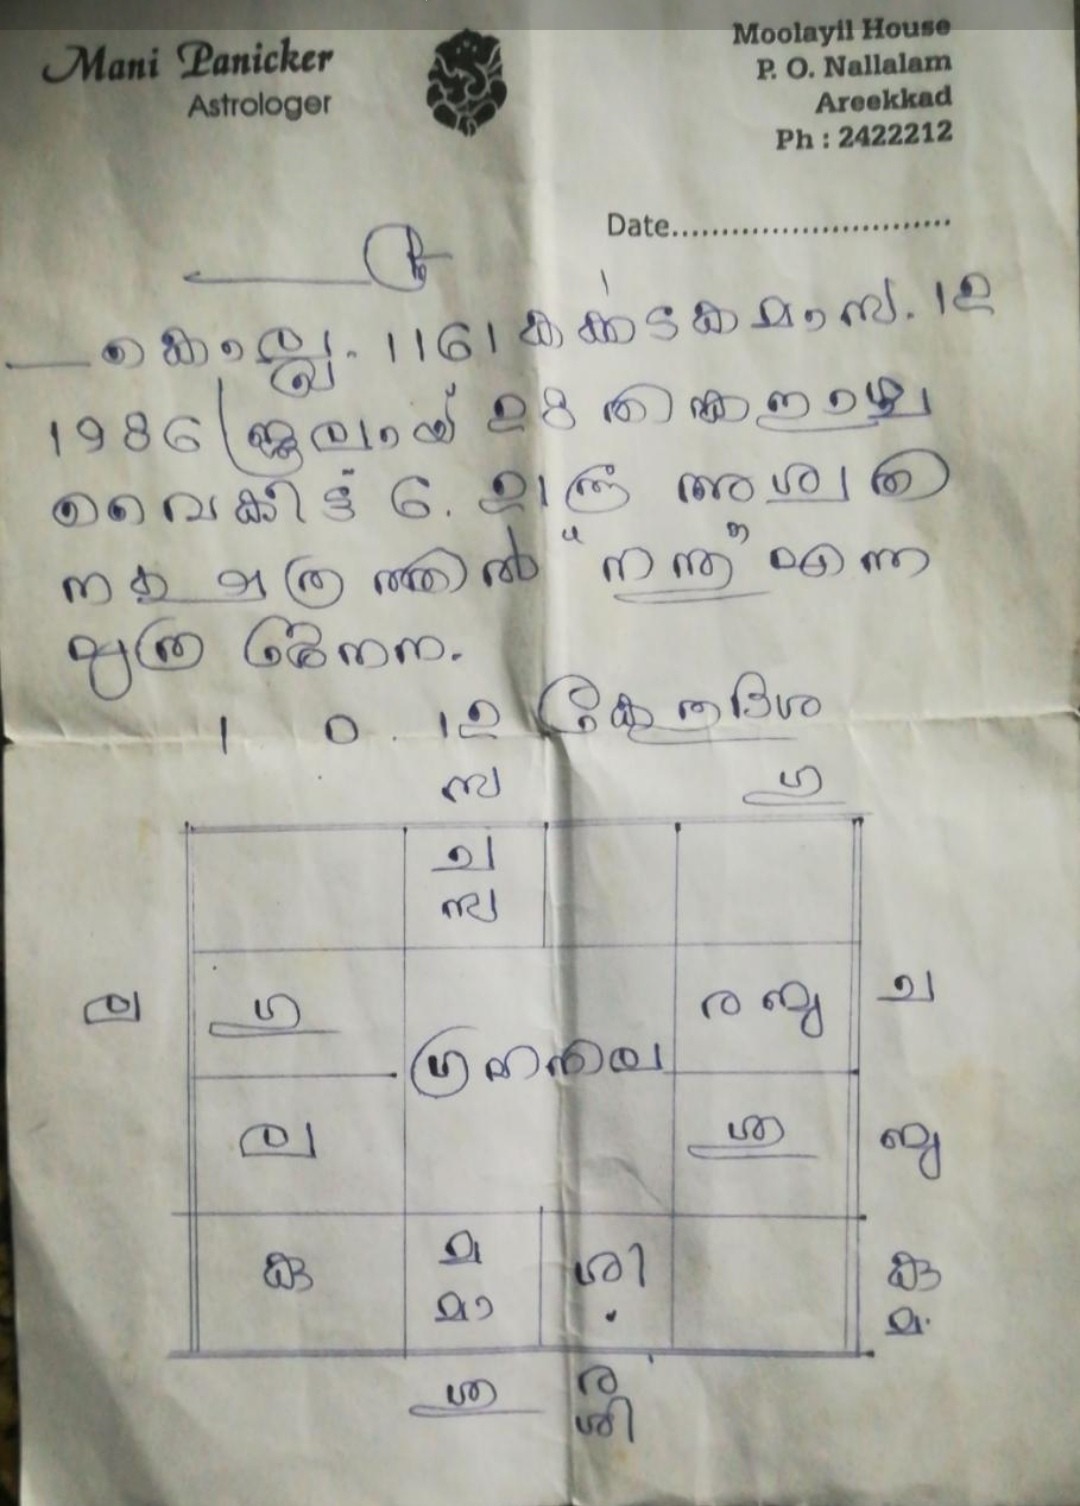 Mani Panicker
Astrologer
Moolayil House
P. O. Nallalam
Areekkad
Ph : 2422212
Date............................
കൊല്ലം. 1161 കർക്കടകമാസം. 12
1986 ജൂലായ് 28 തിങ്കളാഴ്ച
വൈകീട്ട് 6. അശ്വതി
നക്ഷത്രത്തിൽ എന്ന
പുത്ര ജനനം.
1 0 . 12 കേതുദശ
സ ഗു
ച
സ
ല ഗു ര ബു ച
ഗ്രഹനില
ല ശു ബു
കു മ ശി കു
മാ മ
ശു ര
ശി